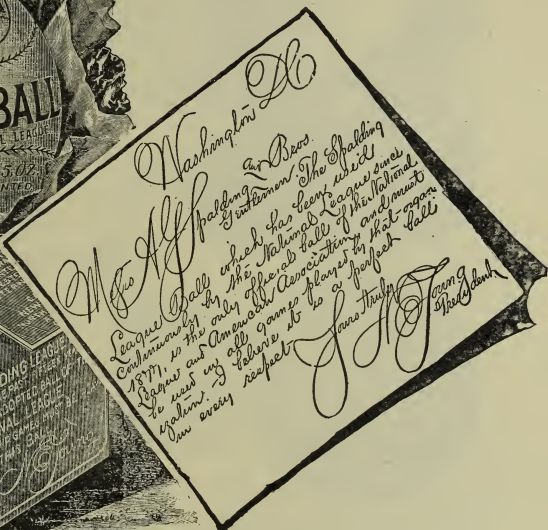 BALL
LEAGUE
5 OZ.
Washington DC
Messrs A G Spalding and Bros.
Gentlemen. The Spalding
League Ball which has been used
continuously by the National League since
18 is the only official ball of the National
League and American Association, and must
be used in all games played by that organ
ization. I believe it is a perfect ball
in every respect
Yours truly
N E Young
President
DING LEAGUE
ADOPTED BALL OF
NAL LEAGUE
THIS BALL